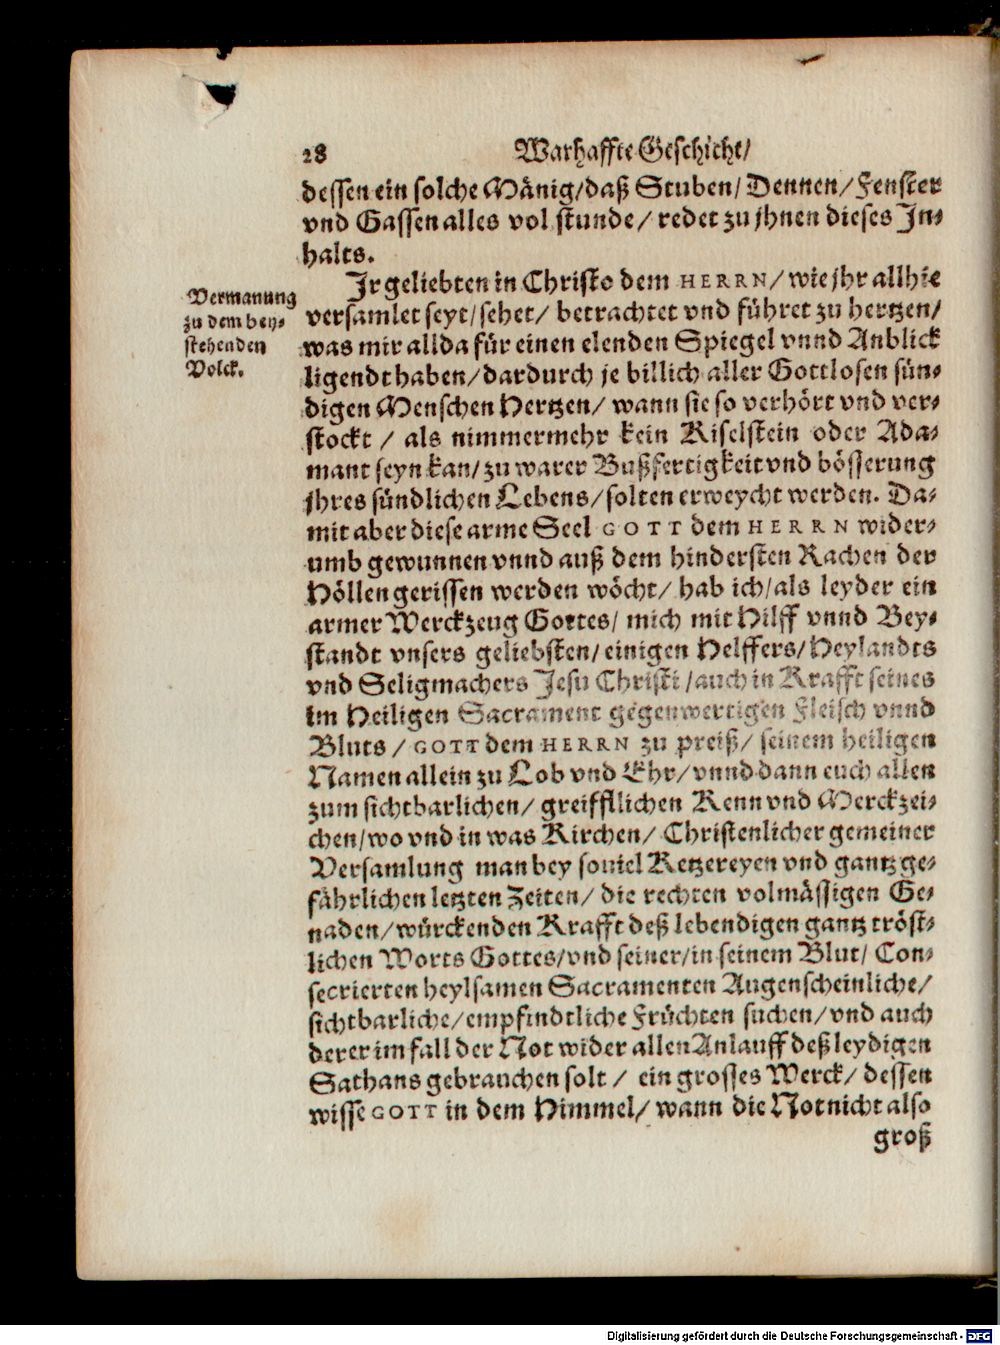 28 Warhaffte Geschicht/
dessen ein solche Mänig/daß Stuben/Dennen/Fenster
vnd Gassen alles vol stunde/ redet zu jhnen dieses In-
halts.
Vermanung
zu dem bey-
stehenden
Volck.
Ir geliebten in Christo dem HERRN/ wie jhr allhie
versamlet seyt/sehet/ betrachtet vnd führet zu hertzen/
was mir allda für einen elenden Spiegel vnnd Anblick
ligendt haben/dardurch je billich aller Gottlosen sün-
digen Menschen Hertzen/ wann sie so verhört vnd ver-
stockt / als nimmermehr kein Kiselstein oder Ada-
mant seyn kan/zu warer Bußfertigkeit vnd bösserung
jhres sündlichen Lebens/solten erweycht werden. Da-
mit aber diese arme Seel GOTT dem HERRN wider-
umb gewunnen vnnd auß dem hindersten Rachen der
Höllen gerissen werden wöcht/ hab ich/als leyder ein
armer Werckzeug Gottes/ mich mit Hilff vnnd Bey-
standt vnsers geliebsten/einigen Helffers/Heylandts
vnd Seligmachers Jesu Christi/auch in Krafft seines
im Heiligen Sacrament gegenwertigen Fleisch vnnd
Bluts / GOTT dem HERRN zu preiß/ seinem heiligen
Namen allein zu Lob vnd Ehr/vnnd dann euch allen
zum sichtbarlichen/ greifflichen Kenn vnd Merckzei-
chen/wo vnd in was Kirchen/ Christenlicher gemeiner
Versamlung man bey souiel Ketzereyen vnd gantz ge-
fährlichen letzten Zeiten/ die rechten volmässigen Ge-
naden/würckenden Krafft deß lebendigen gantz tröst-
lichen Worts Gottes/vnd seiner/in seinem Blut/ Con-
secrierten heylsamen Sacramenten Augenscheinliche/
sichtbarliche/empfindtliche Früchten suchen/vnd auch
derer im fall der Not wider allen Anlauff deß leydigen
Sathans gebrauchen solt / ein grosses Werck/ dessen
wisse GOTT in dem Himmel/ wann die Not nicht also
groß
Digitalisierung gefördert durch die Deutsche Forschungsgemeinschaft - DFG